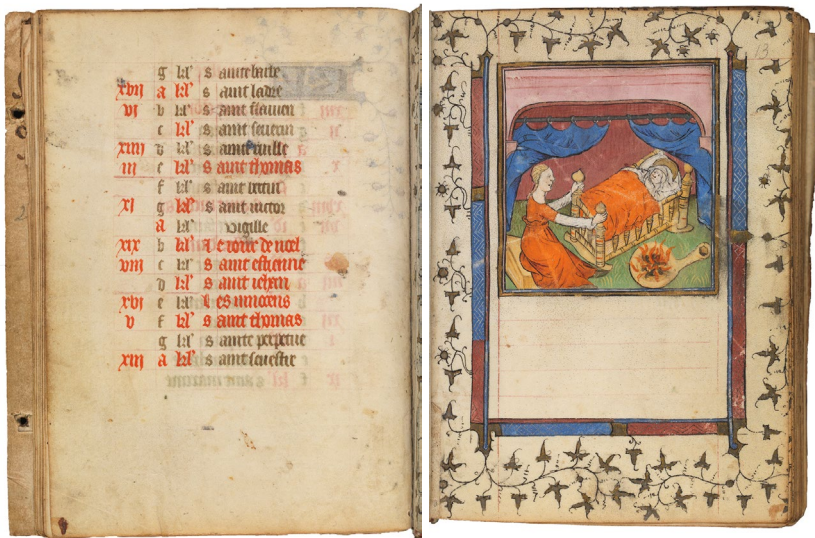 g kl' s
xvij a kl' s aint ladre
vj b kl' s aint flauien
c kl' s aint seuerin
xiiij d kl' s
iij e kl' s aint thomas
f kl' s aint
xj g kl' s aint uictor
a kl' vigille
xix b kl' L e iour de noel
viij c kl' s aint estienne
d kl' s aint iehan
xvj e kl' L es innocens
v f kl' s aint thomas
g kl' s ainte perpetue
xiij a kl' s aint seuestre
13